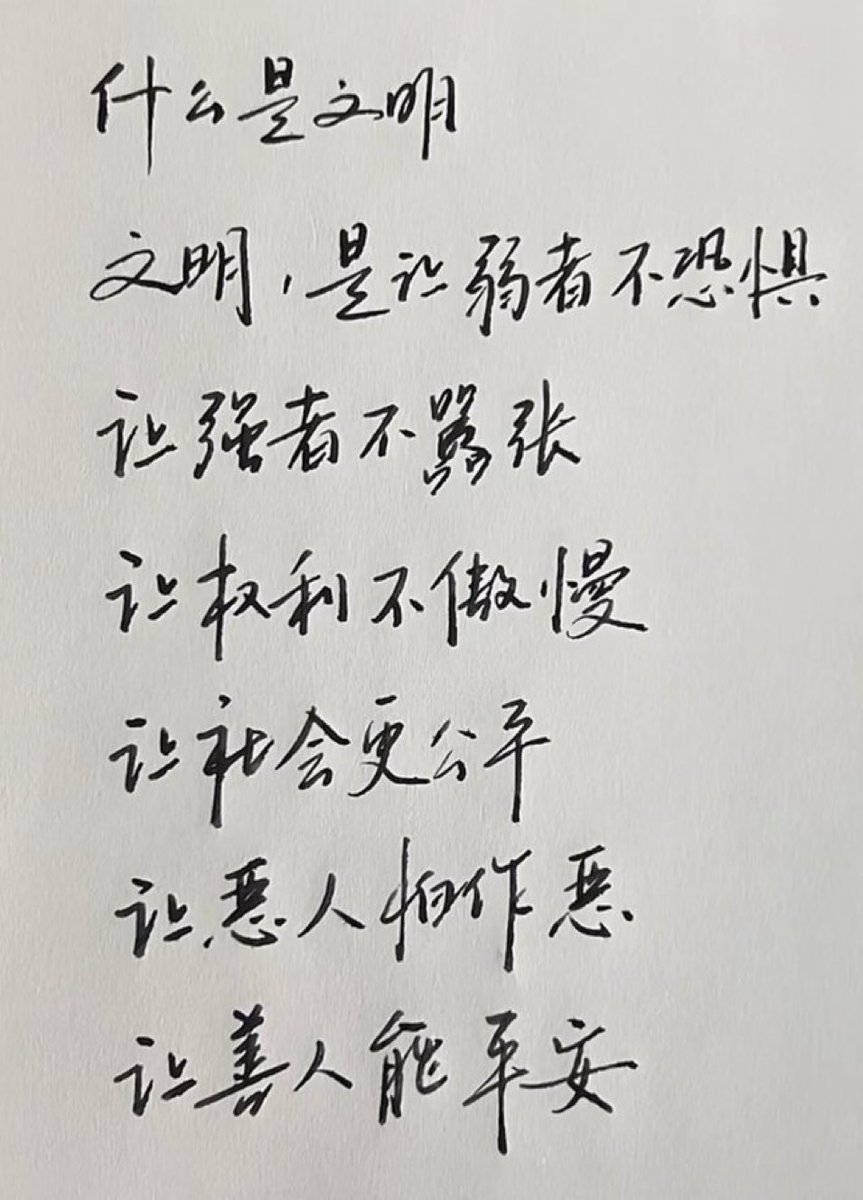 什么是文明
文明，是让弱者不恐惧
让强者不嚣张
让权利不傲慢
让社会更公平
让恶人怕作恶
让善人能平安